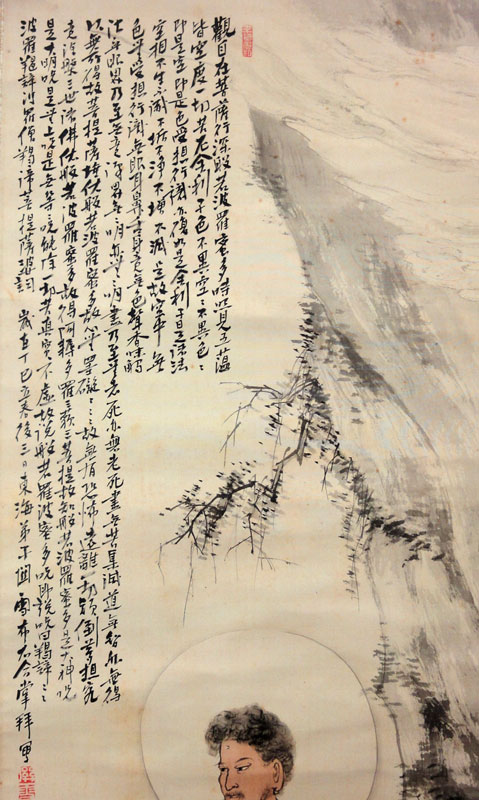 觀自在菩薩行深般若波羅蜜多時照見五蘊
皆空度一切苦厄舍利子色不異空〻不異色〻
即是空即是色受想行識亦復如是舍利子是諸法
空相不生不滅不垢不淨不增不減是故空中無
色無受想行識無眼耳鼻舌身意無色聲香味觸
法無眼界乃至無意識界無無明亦無無明盡乃至無老死亦無老死盡無苦集滅道無智亦無得
以無所得故菩提薩埵依般若波羅蜜多故心無罣礙〻〻故無有恐怖遠離一切顛倒夢想究
竟涅槃三世諸佛依般若波羅蜜多故得阿耨多羅三藐三菩提故知般若波羅蜜多是大神咒
是大明咒是無上咒是無等〻咒能除一切苦真實不虛故說般若羅波蜜多咒即說咒曰羯諦〻〻
波羅羯諦波羅僧羯諦菩提薩婆訶 歲在丁巳立春後三日東海弟子合掌拜寫